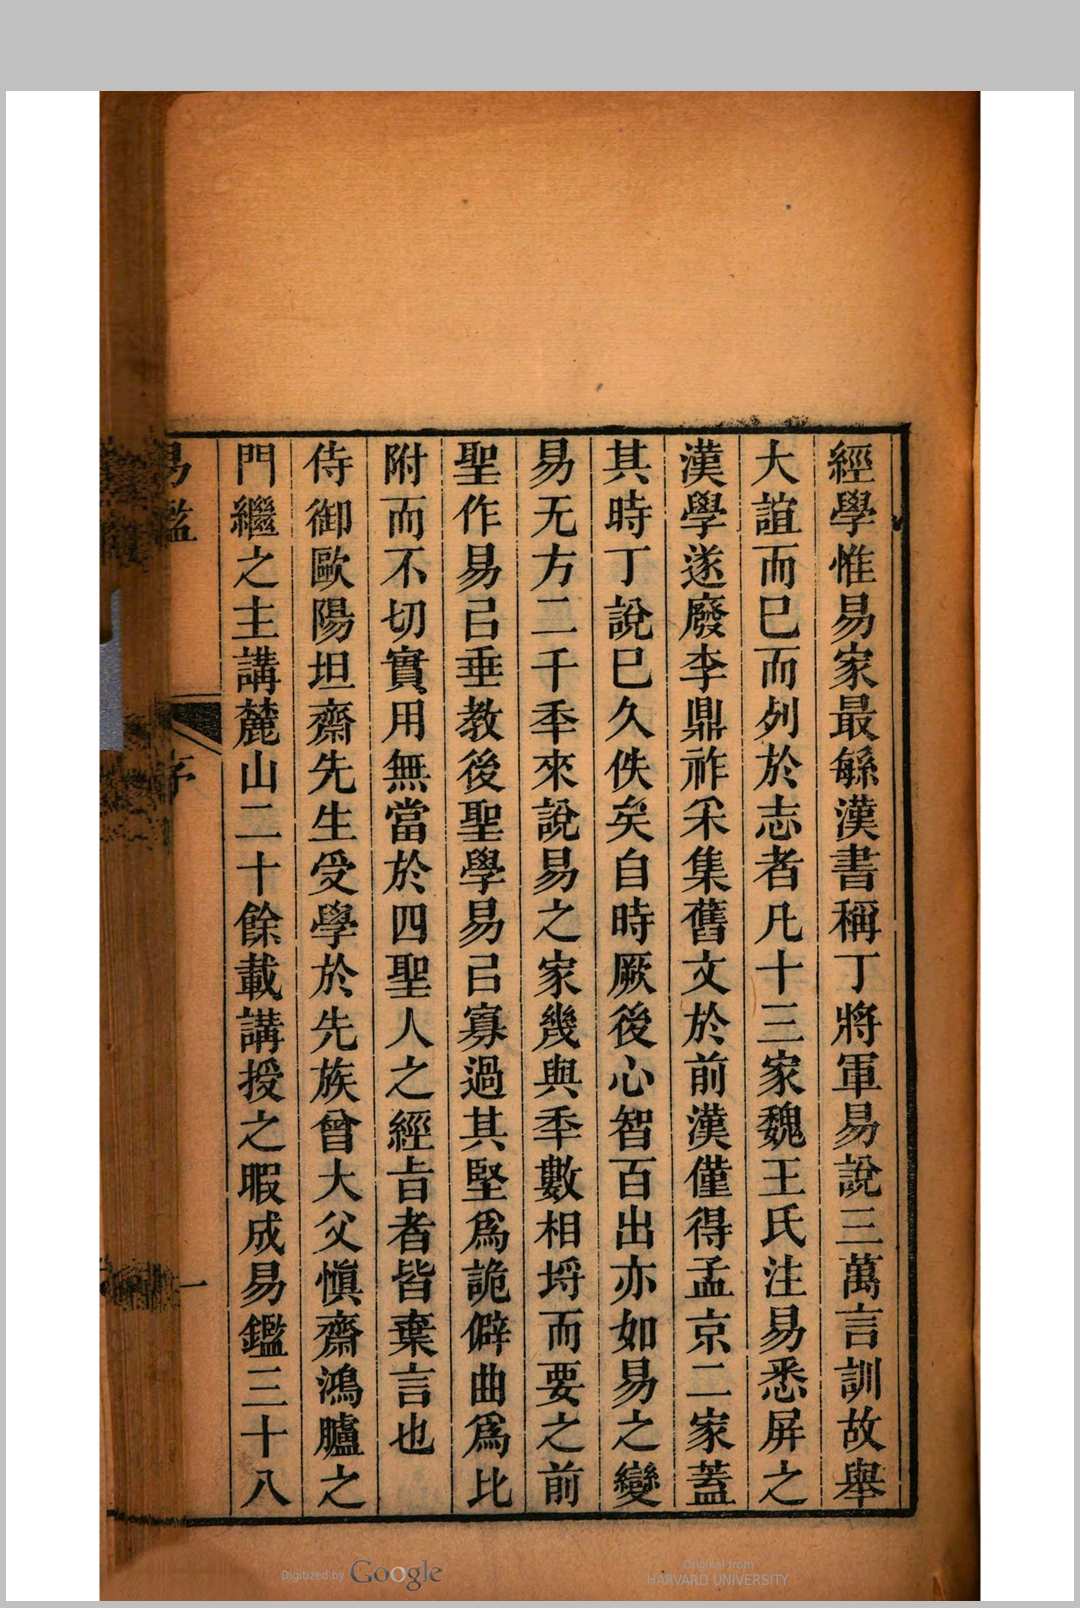 經學惟易家最緐漢書稱丁將軍易說三萬言訓故舉
大誼而已而列於志者凡十三家魏王氏注易悉屏之
漢學遂廢李鼎祚采集舊文於前漢僅得孟京二家蓋
其時丁說已久佚矣自時厥後心智百出亦如易之變
易无方二千秊來說易之家幾與秊數相埒而要之前
聖作易㠯垂教後聖學易㠯寡過其堅爲詭僻曲爲比
附而不切實用無當於四聖人之經㫖者皆棄言也
侍御歐陽坦齋先生受學於先族曾大父愼齋鴻臚之
門繼之主講麓山二十餘載講授之暇成易鑑三十八
易鑑
序
一
Digitized by Google
Original from
HARVARD UNIVERSITY